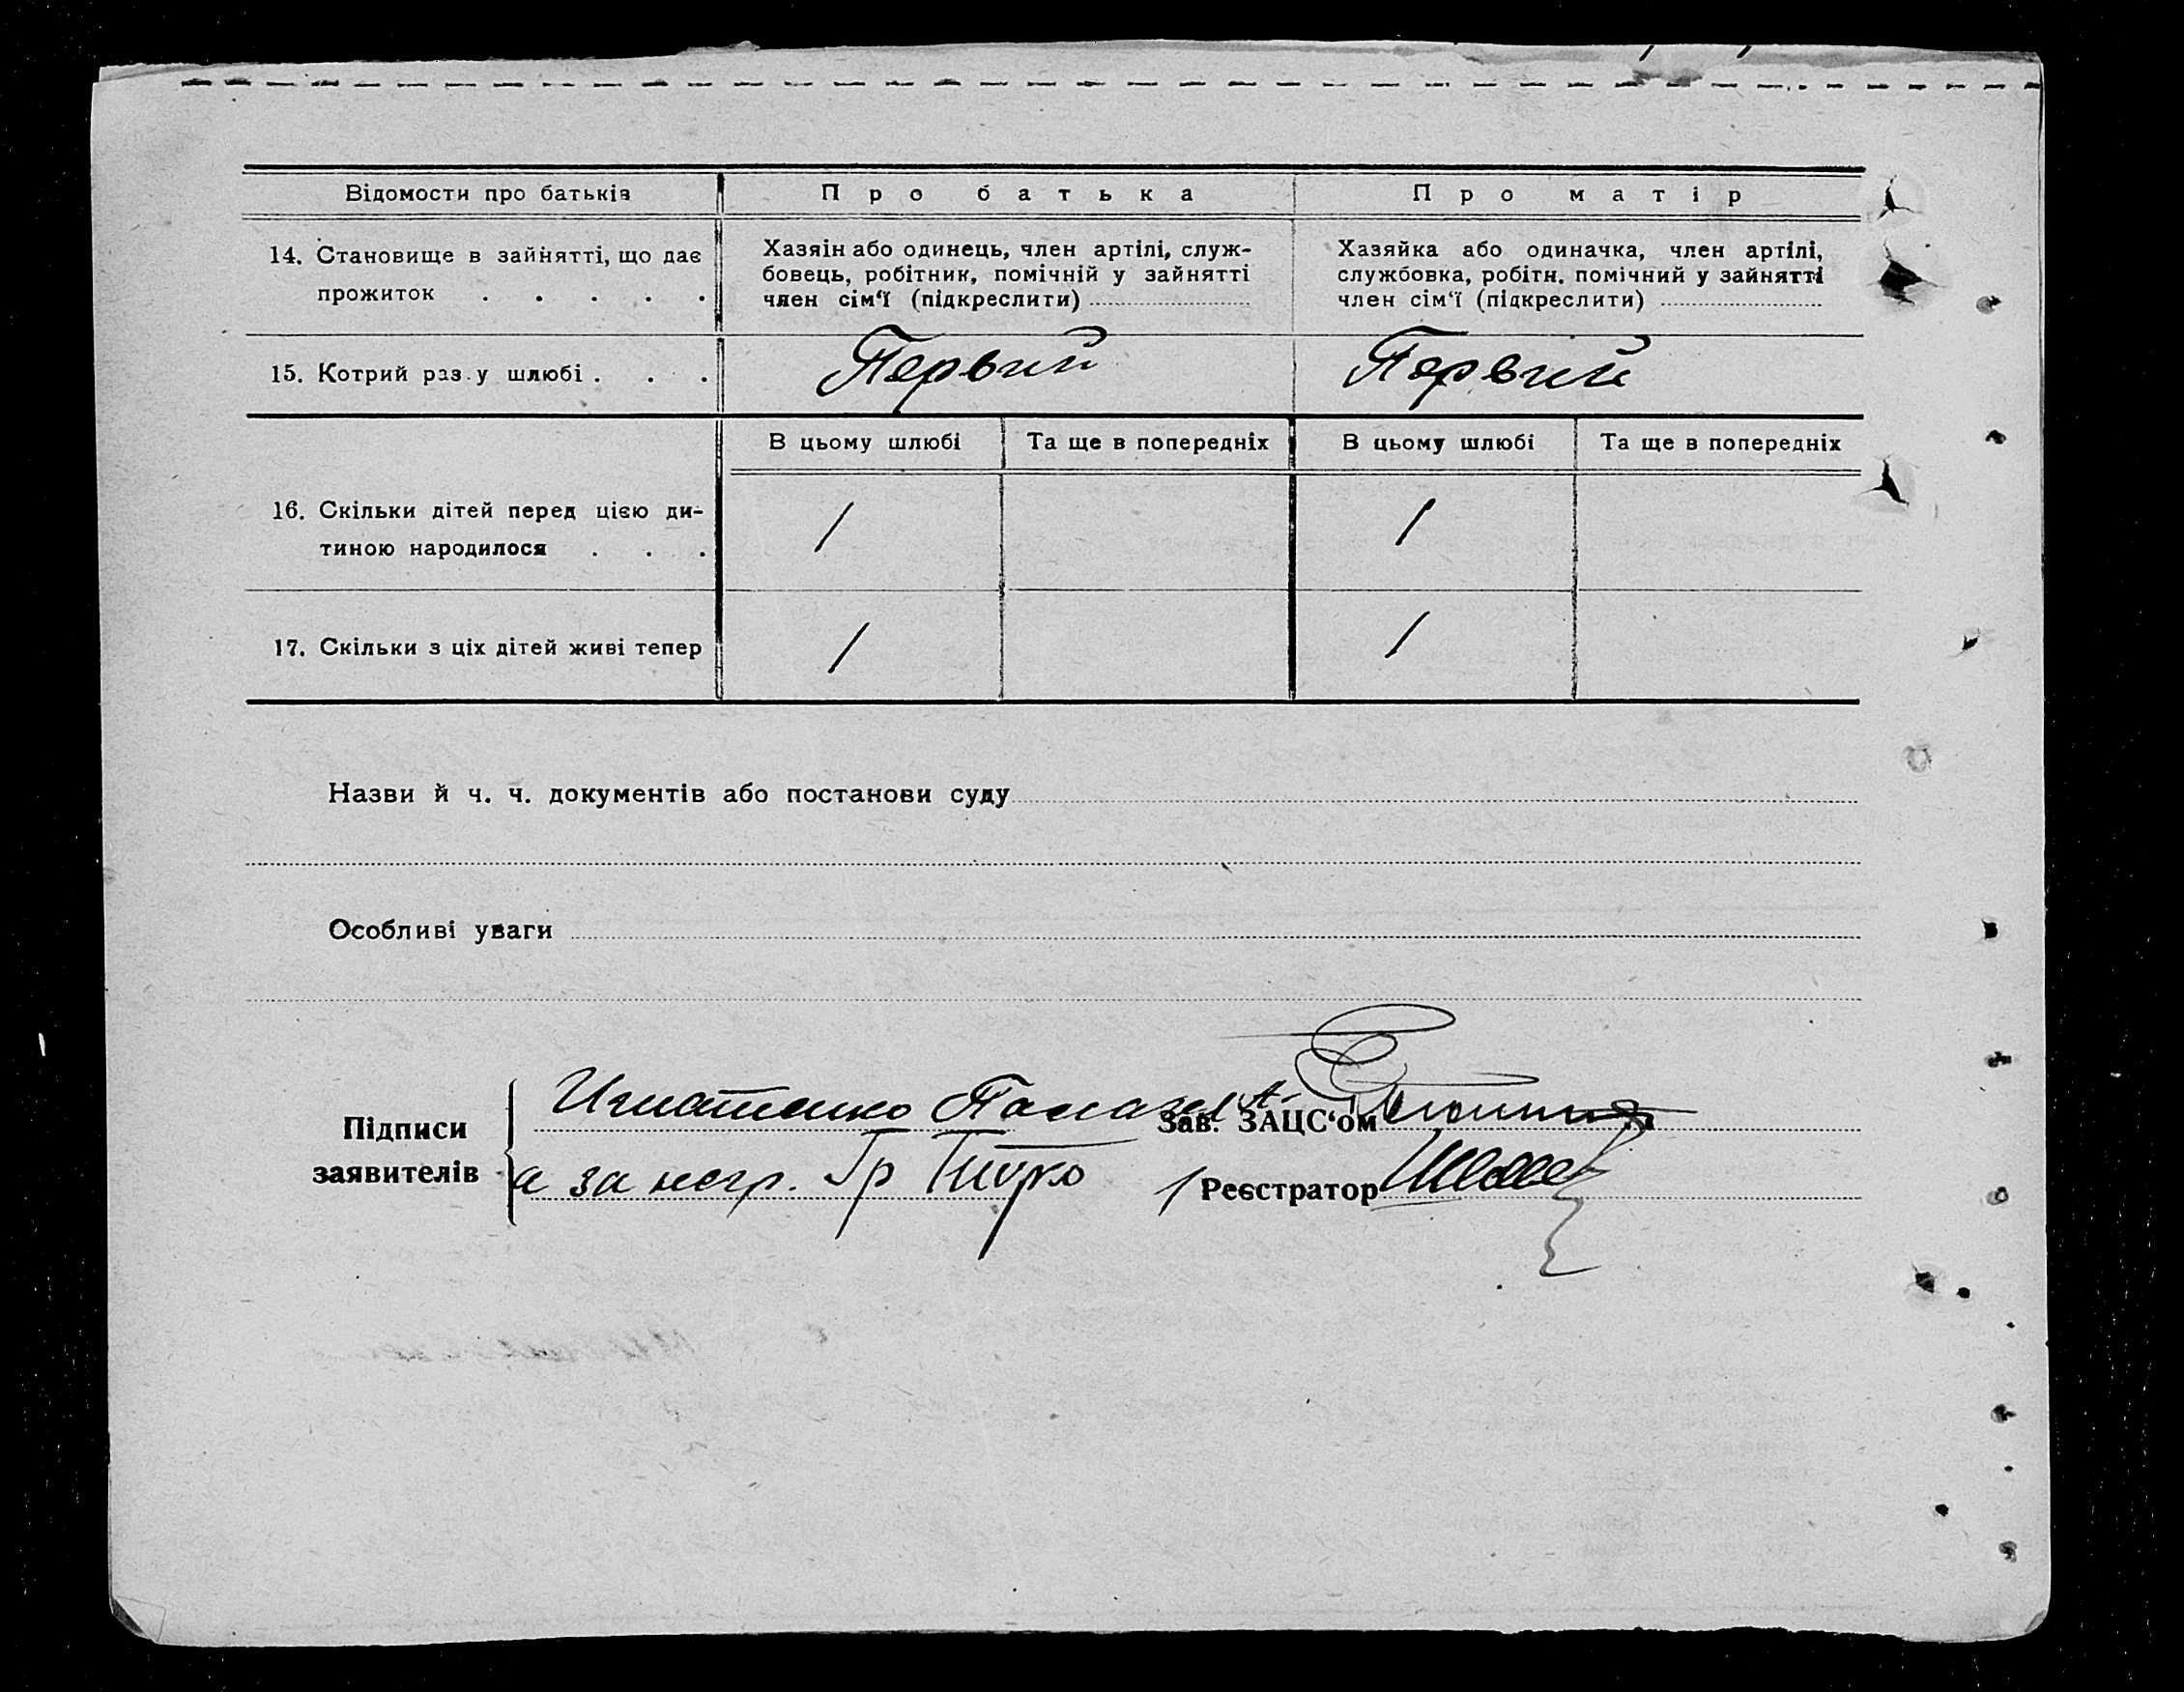 Відомости про батьків
Про батька
Про матір
14. Становище в зайнятті, що дає
прожиток . . . . .
Хазяін або одинець, член артілі, служ-
бовець, робітник, помічній у зайнятті
член сім‘ї (підкреслити)
Хазяйка або одиначка, член артілі,
службовка, робітн. помічний у зайнятті
член сім‘ї (підкреслити)
15. Котрий раз у шлюбі . . .
Первий
Первий
В цьому шлюбі
Та ще в попередніх
В цьому шлюбі
Та ще в попередніх
16. Скільки дітей перед цією ди-
тиною народилося . . .
1
1
17. Скільки з ціх дітей живі тепер
1
1
Назви й ч. ч. документів або постанови суду
Особливі уваги
Підписи
заявителів
Игнатенко
а за негр. Гр
Зав. ЗАЦС‘ом
Реєстратор